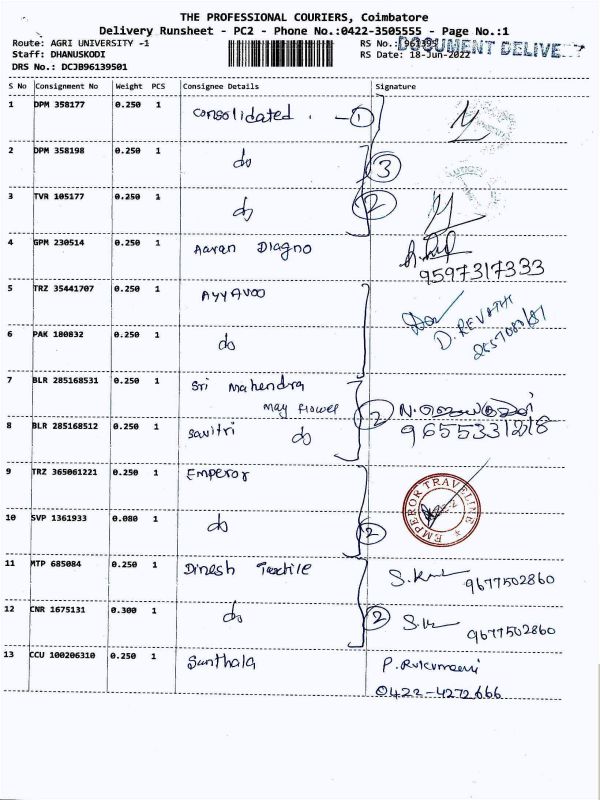 THE PROFESSIONAL COURIERS, Coimbatore
Delivery Runsheet - PC2 - Phone No.:0422-3505555 - Page No.:1
Route: AGRI UNIVERSITY -1
RS No.:
DOCUMENT DELIVE
Staff: DHANUSKODI
RS Date: 18-Jun-2022
DRS No.: DCJB96139501
S No Consignment No Weight PCS Consignee Details Signature
1 DPM 358177 0.250 1 Consolidated. - 1
2 DPM 358198 0.250 1 do 3
3 TVR 105177 0.250 1 do 2
4 GPM 230514 0.250 1 Aaran Diagno
9597317333
5 TRZ 35441707 0.250 1 AYYAVOO
D. REVATHI
6 PAK 180832 0.250 1 do
7 BLR 285168531 0.250 1 Sri Mahendra
May flower 2
8 BLR 285168512 0.250 1 Savitri do
9 TRZ 365061221 0.250 1 Emperor
EMPEROR TRAVELINE
10 SVP 1361933 0.080 1 do 2
11 MTP 685084 0.250 1 Dinesh Textile 9677502860
12 CNR 1675131 0.300 1 do 2 9677502860
13 CCU 100206310 0.250 1 Santhala P. Rukumani
0422-4272666